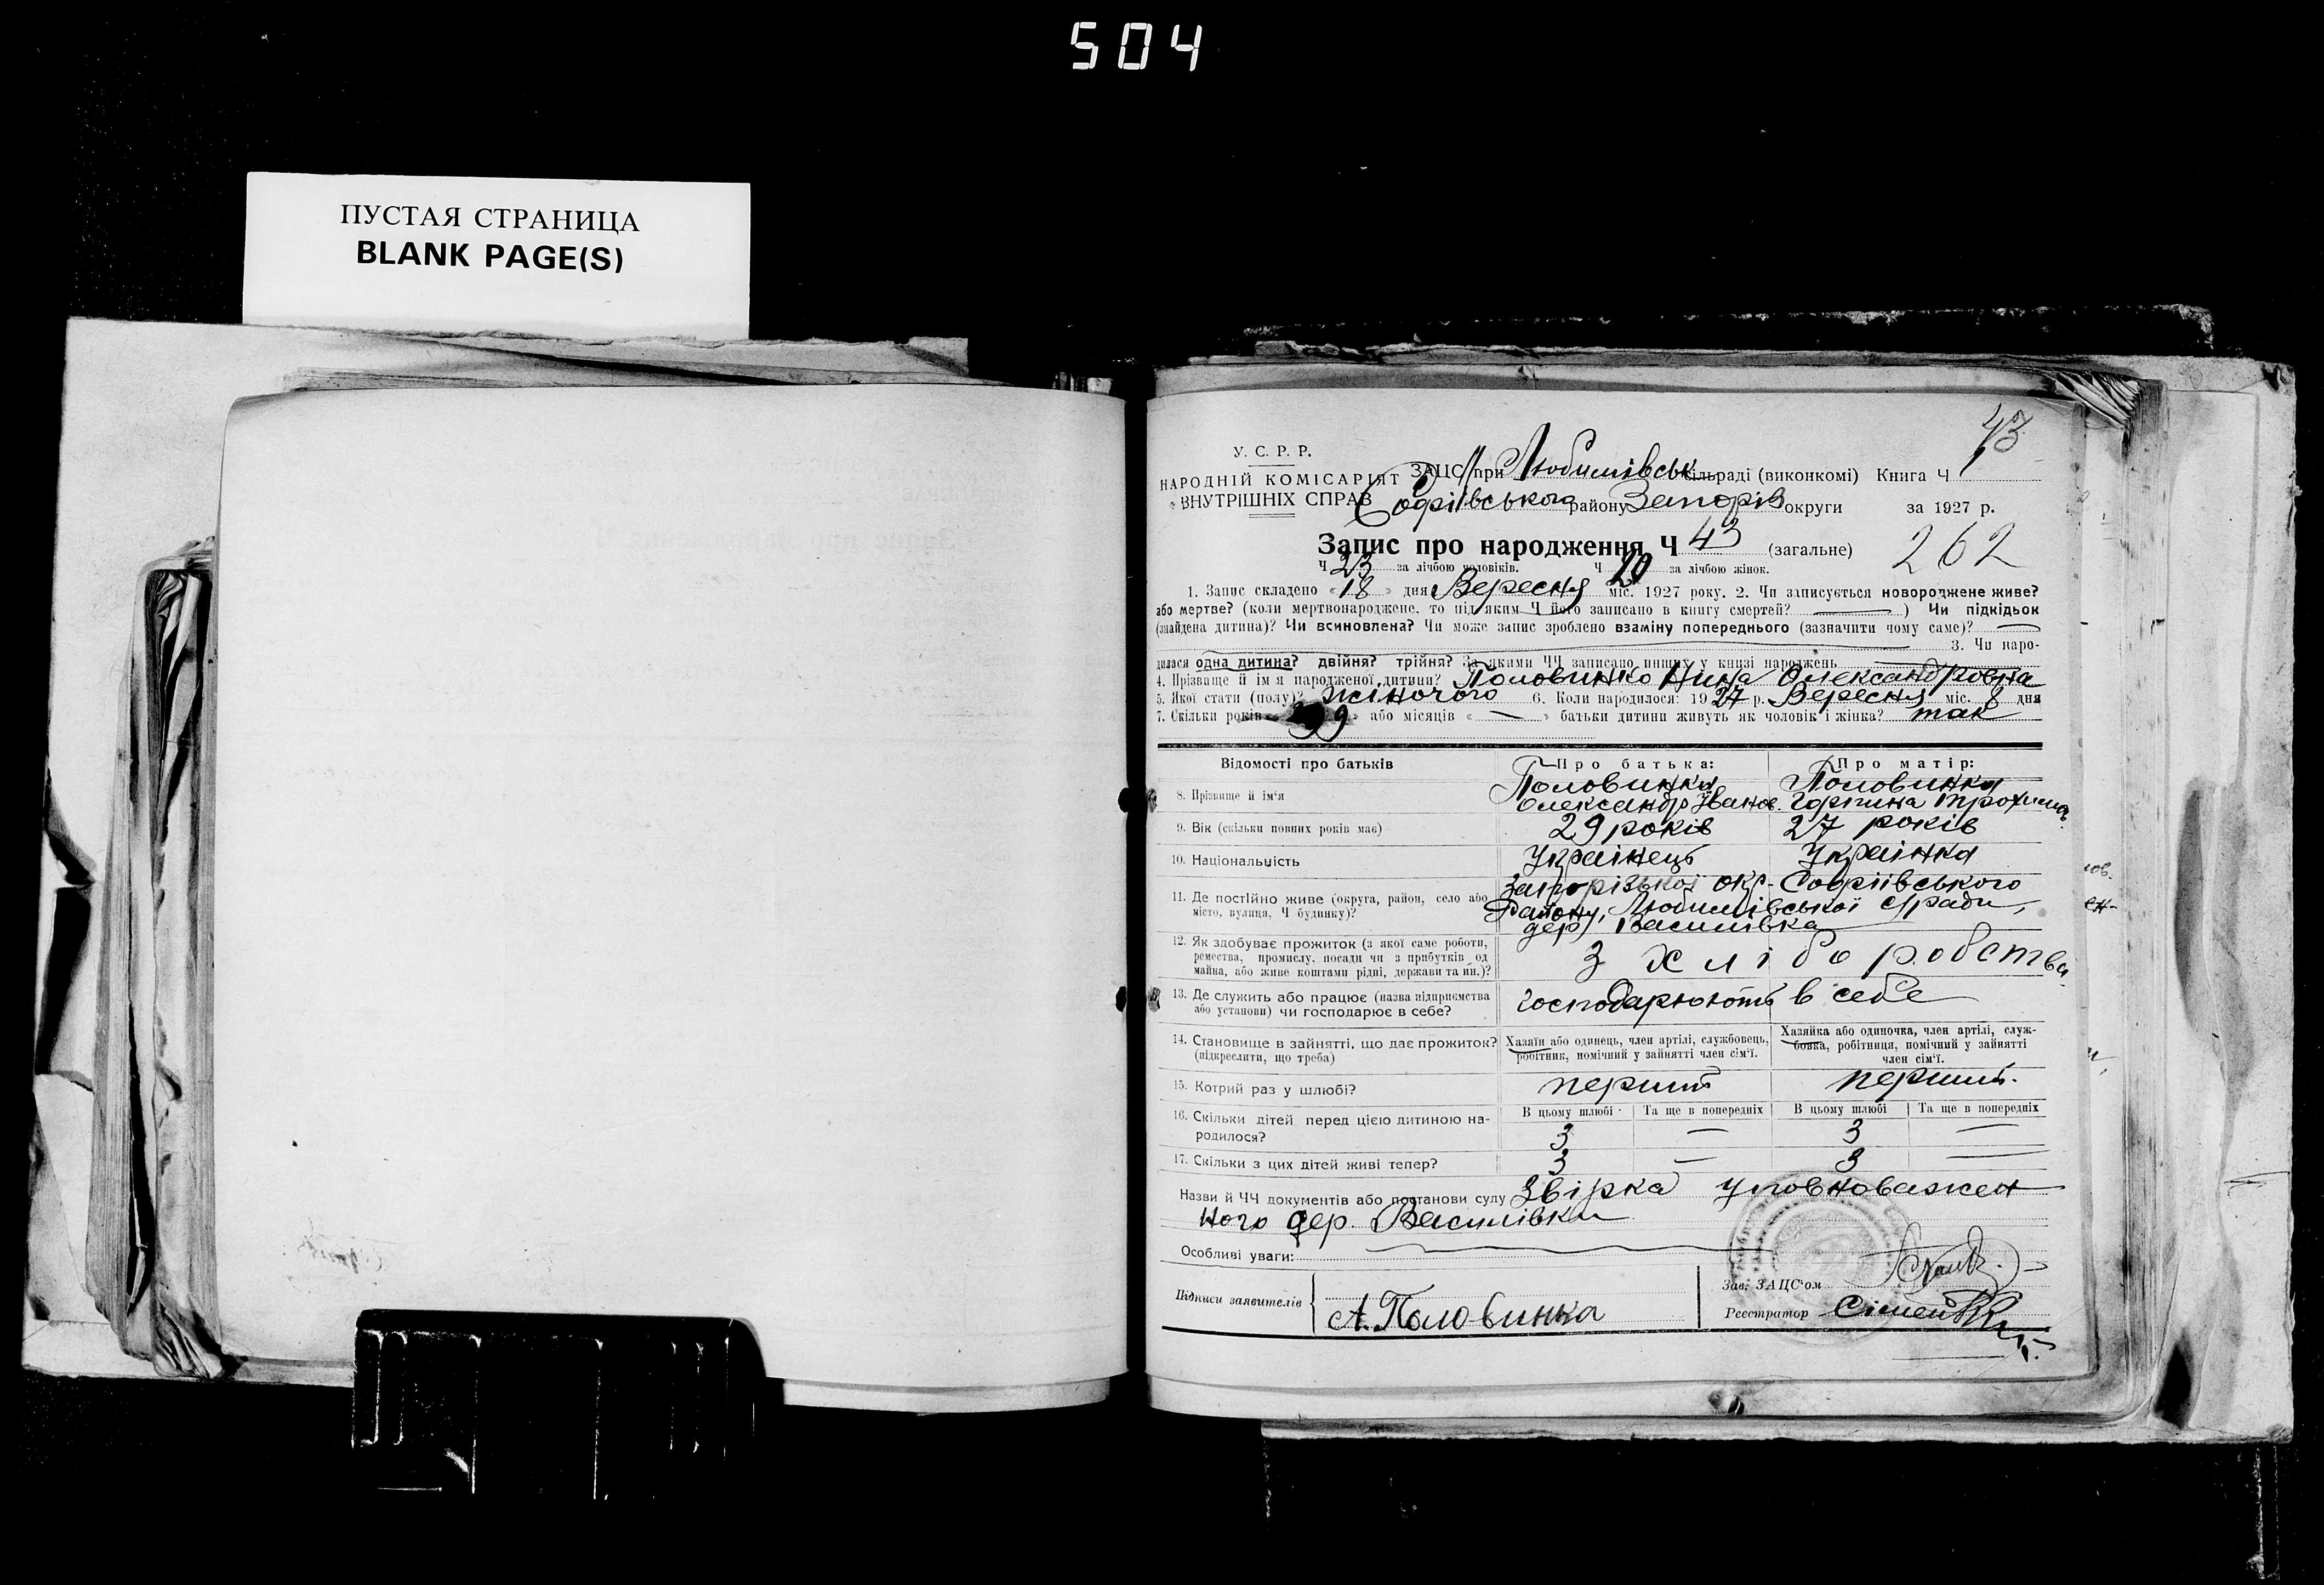 504
ПУСТАЯ СТРАНИЦА
BLANK PAGE(S)
43
У. С. Р. Р.
НАРОДНІЙ КОМІСАРІЯТ
ВНУТРІШНІХ СПРАВ
ЗАЦС при Любимівськ сільраді (виконкомі) Книга Ч
Софіївського району Запоріз округи за 1927 р.
Запис про народження Ч 43 (загальне) 262
Ч 23 за лічбою чоловіків. Ч 20 за лічбою жінок.
1. Запис складено « 18 » дня Вересня міс. 1927 року. 2. Чи записується новороджене живе?
або мертве? (коли мертвонароджене, то під яким Ч його записано в книгу смертей? —) Чи підкідьок
(знайдена дитина)? Чи всиновлена? Чи може запис зроблено взаміну попереднього (зазначити чому саме)? —
3. Чи наро-
дилася одна дитина? двійня? трійня? За якими ЧЧ записано инших у книзі народжень
4. Прізвище й ім'я народженої дитини? Половинко Нина Олександровна
5. Якої стати (полу)? жіночого 6. Коли народилося: 1927 р. Вересня міс. 8 дня
7. Скільки років « 9 » або місяців « — » батьки дитини живуть як чоловік і жінка? так
Відомості про батьків Про батька: Про матір:
8. Прізвище й ім'я Половинка Половинка
Олександр Іванов. Горпина Трохимов.
9. Вік (скільки повних років має) 29 років 27 років
10. Національність Українець Українка
11. Де постійно живе (округа, район, село або місто, вулиця, Ч будинку)? Запорізької окр. Софіївського
Району, Любимівської с/ради,
дер. Василівка
12. Як здобуває прожиток (з якої саме роботи, ремества, промислу, посади чи з прибутків од майна, або живе коштами рідні, держави та ин.)? З хліборобства
13. Де служить або працює (назва підприємства або установи) чи господарює в себе? господарюють в себе
14. Становище в зайнятті, що дає прожиток? (підкреслити, що треба)
Хазяїн або одинець, член артілі, службовець, робітник, помічний у зайнятті член сім'ї.
Хазяйка або одиночка, член артілі, служ-
бовка, робітниця, помічний у зайнятті
член сім'ї.
15. Котрий раз у шлюбі? перший перший.
16. Скільки дітей перед цією дитиною на-
родилося?
В цьому шлюбі Та ще в попередніх В цьому шлюбі Та ще в попередніх
3 — 3 —
17. Скільки з цих дітей живі тепер? 3 — 3 —
Назви й ЧЧ документів або постанови суду Звірка уповноважен
ного дер. Василівки
Особливі уваги:
Підписи заявителів А. Половинка
Зав. ЗАЦС'ом
Реєстратор